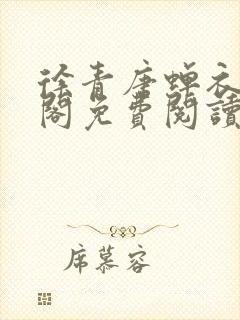 徐青唐蝉衣
閣免費閱讀
席慕容